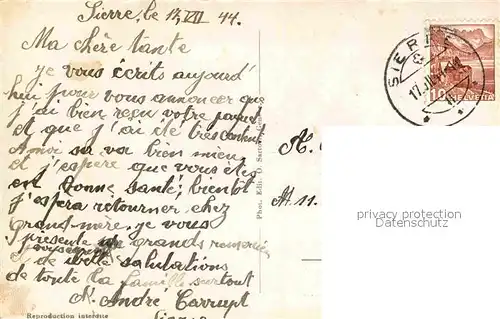 Sierre, le 17. VII 44.
Ma chère tante
je vous écrits aujourd'
hui pour vous annoncer que
j'ai bien reçu votre paquet
et que j'ai été tres content
A moi sa va bien mieu
et j'espère que vous êtes
en bonne santé, bientôt
j'espera retourner chez
grand-mère, je vous
presente grands
de salutations
de toute la famille surtout
A. André Carrupt
Sierre
Reproduction interdite
Phot. Edit. O.
SIERRE
17.
10 HELVETIA
A.
At 11.
privacy protection
Datenschutz